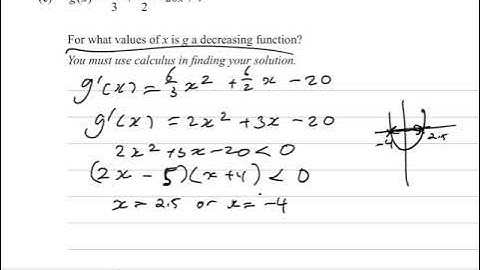 For what values of x is g a decreasing function?
You must use calculus in finding your solution.
g'(x) = 6/3 x² + 6/2 x - 20
g'(x) = 2x² + 3x - 20
2x² + 3x - 20 < 0
(2x - 5)(x + 4) < 0
x = 2.5 or x = -4
-4 2.5